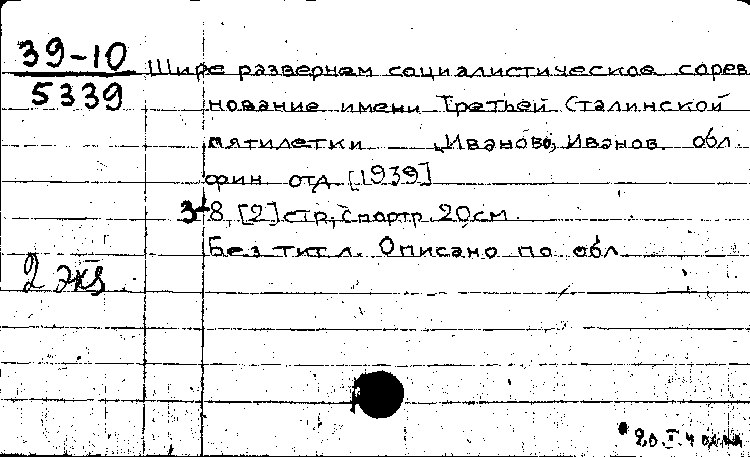 39-10
5339
Шире развернем социалистическое сорев
нование имени Третьей Сталинской
пятилетки Иваново, Иванов. обл.
фин. отд. [1939]
3-8, [2] стр, с портр. 20 см.
Без тит. л. Описано по обл.
2 экз.